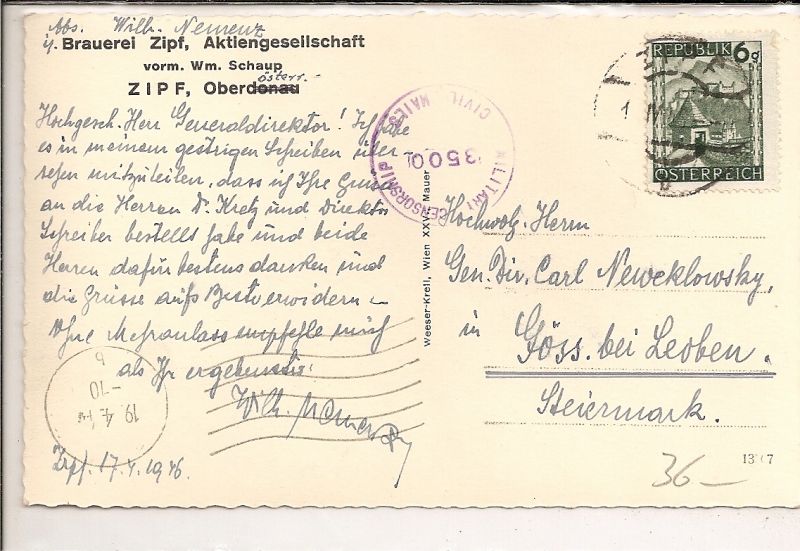 Abs. Wilh. Nemenz
i/ Brauerei Zipf, Aktiengesellschaft
vorm. Wm. Schaup
österr.
ZIPF, Oberdonau
Hochgesch. Herr Generaldirektor! Ich habe
es in meinem gestrigen Schreiben über-
sehen mitzuteilen, dass ich Ihre Grüsse
an die Herren Dr. Kretz und Direktor
Schreiber bestellt habe und beide
Herren dafür bestens danken und
die Grüsse aufs Beste erwidern
Ohne Mehranlass empfehle mich
als Ihr ergebenster
Wilh. Nemenz
Zipf. 17.4.1946
19.4.
-10
6
MILITARY CENSORSHIP CIVIL MAILS
3500
Weeser-Krell, Wien XXV - Mauer
REPUBLIK 6g
ÖSTERREICH
Hochwolg. Herrn
Gen. Dir. Carl Neweklowsky,
in Göss. bei Leoben.
Steiermark.
36-